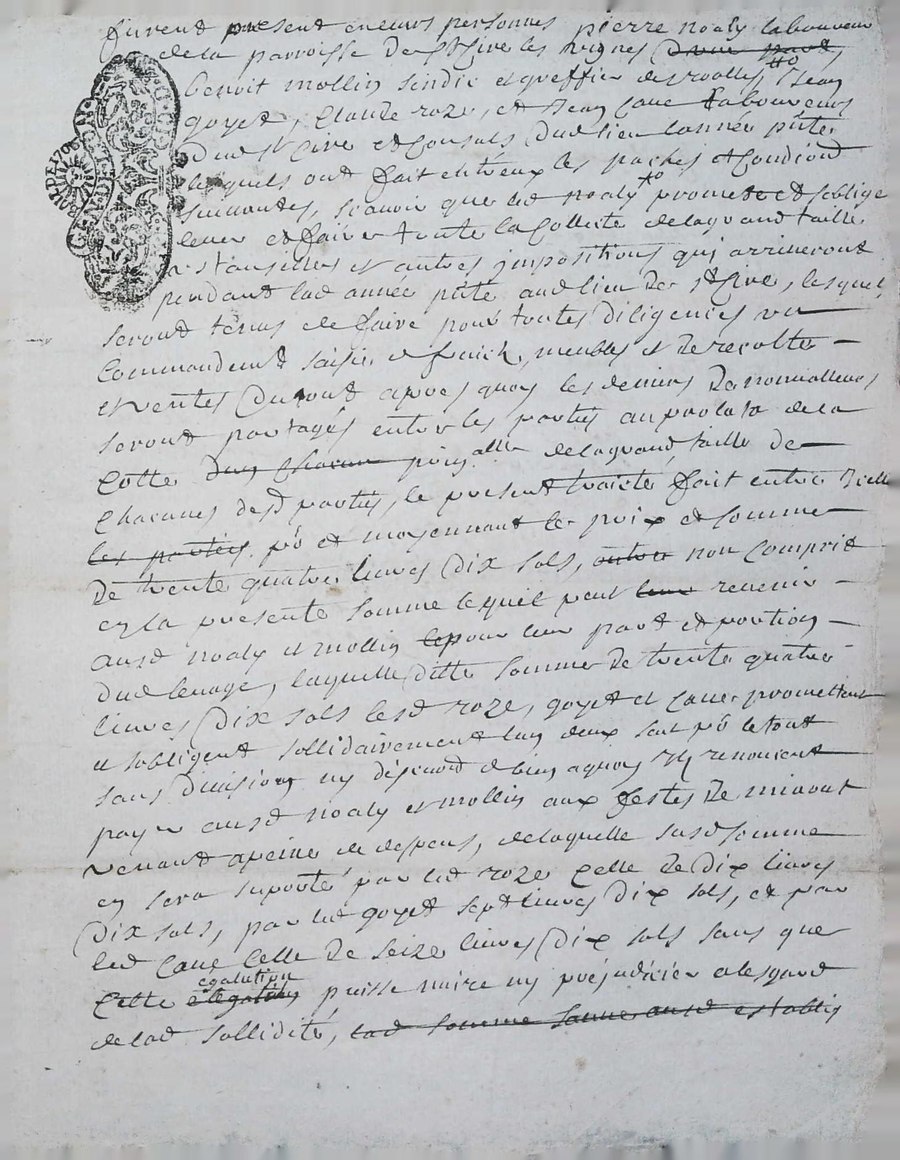 furent present en leurs personnes pierre noaly laboureur
de la parroisse de st Cire les vignes
benoit mollin sindic et greffier de Jean
goyet, Claude roze, et Jean Caue laboureurs
dud st Cire et Consuls dud lieu lannée pnte
lesquels ont fait entreux les paches et Condions
suiuantes, scauoir que led noaly promet et soblige
leuer et faire toute la Collecte de la grand taille
et autres jmpositions qui arriueront
pendant lad année pnte aud lieu de st Cire, lesquels
seront tenus de faire pour toutes diligences un
Commandement saisie de fruich, meubles et de recolte
et ventes durant apres quoy les deniers de
seront partagés entre les parties au prolata de la
Cotte dun Chacun prinalle de la grand taille de
Chacunes desd parties, le present traicté fait entre Jcelles
les parties po et moyennant le prix et somme
de trente quatre liures dix sols, outre non Compris
en la presente somme le quil peut leur reuenir
ausd noaly et mollin pour leur part et portion
dud leuage, laquelle ditte somme de trente quatre
liures dix sols lesd roze, goyet et Caue promettent
et sobligent sollidairement lun deux seul po le tout
sans diuision ny de bien a quoy renoncent
payer ausd noaly et mollin aux festes de miaout
venant a peine de despens, de laquelle susd somme
en sera suporté par led roze Celle de dix liures
dix sols, par led goyet sept liures dix sols, et par
led Caue Celle de seize liures dix sols sans que
egalution
Cette puisse nuire ny préjudicier a lesgard
de lad sollidité, lad somme ausd establis